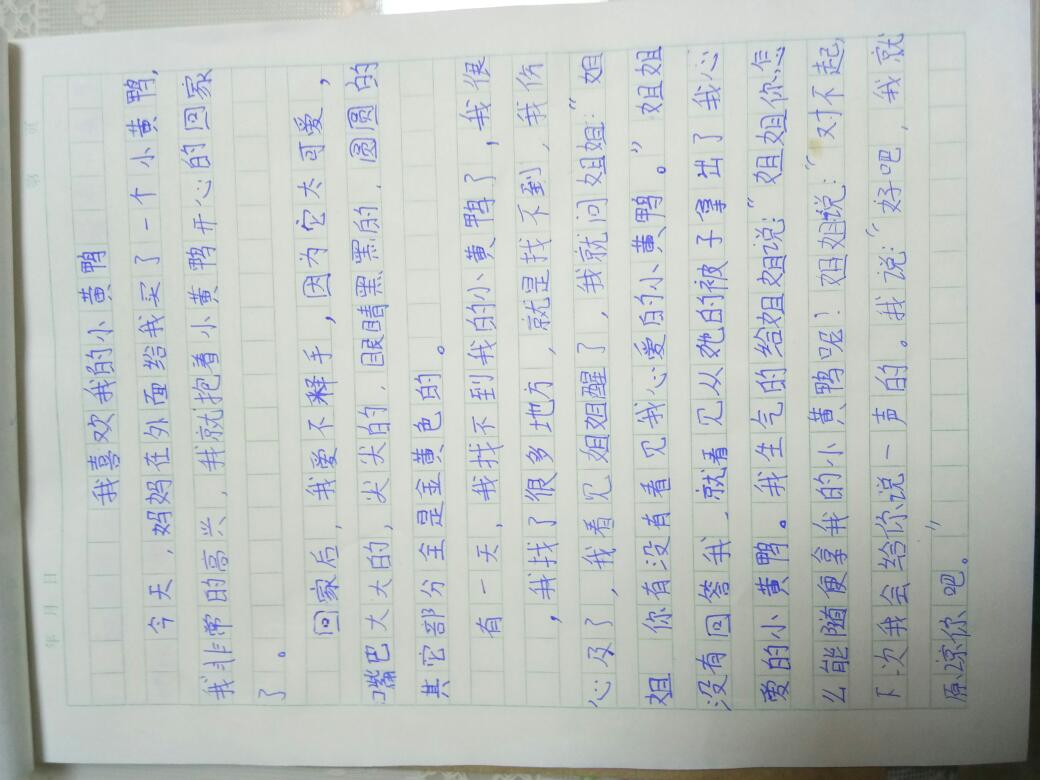 年 月 日
第 页
我喜欢我的小黄鸭
今天,妈妈在外面给我买了一个小黄鸭,
我非常的高兴,我就抱着小黄鸭开心的回家
了。
回家后,我爱不释手,因为它太可爱,
嘴巴大大的,尖尖的,眼睛黑黑的,圆圆的
其它部分全是金黄色的。
有一天,我找不到我的小黄鸭了,我很
,我找了很多地方,就是找不到,我伤
心及了,我看见姐姐醒了,我就问姐姐:“姐
姐 你有没有看见我心爱的小黄鸭。”姐姐
没有回答我,就看见从她的被子拿出了我心
爱的小黄鸭。我生气的给姐姐说:“姐姐你怎
么能随便拿我的小黄鸭呢!姐姐说:“对不起,
下次我会给你说一声的。我说:“好吧,我就
原谅你吧。”